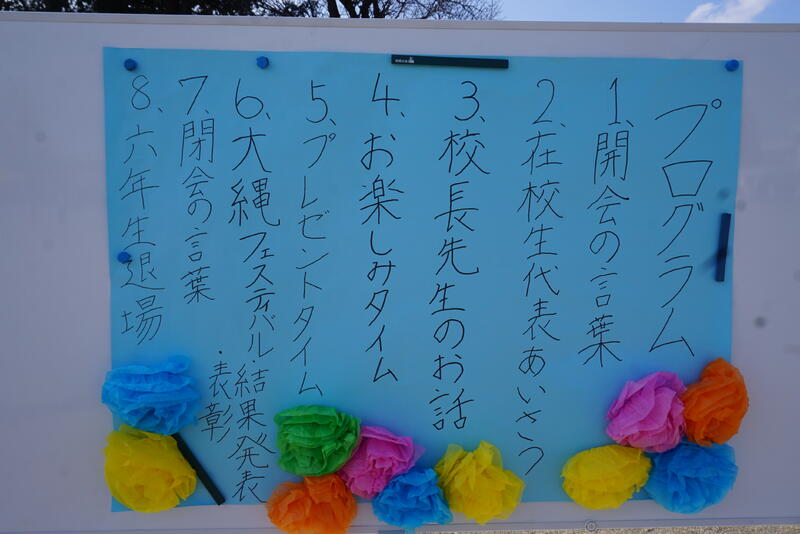 プログラム
1、開会の言葉
2、在校生代表あいさつ
3、校長先生のお話
4、お楽しみタイム
5、プレゼントタイム
6、大縄フェスティバル・結果発表
・表彰
7、閉会の言葉
8、六年生退場